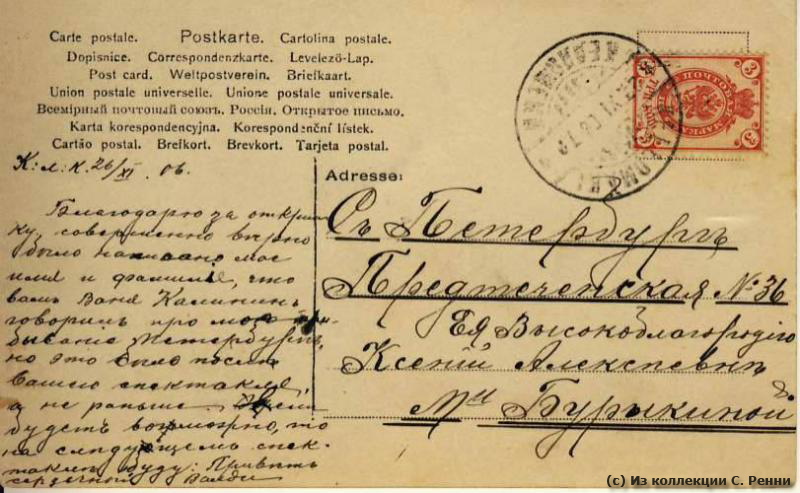 Carte postale. Postkarte. Cartolina postale.
Dopisnice. Correspondenzkarte. Levelező-Lap.
Post card. Weltpostverein. Briefkaart.
Union postale universelle. Unione postale universale.
Всемірный почтовый союзъ. Россія. Открытое письмо.
Karta korespondencyjna. Korespondenční lístek.
Cartão postal. Brefkort. Brevkort. Tarjeta postal.
К. л. к. 26/XI 06.
Благодарю за открыт-
ку, совершенно вѣрно
было написано мое
имя и фамилія, что
вамъ Ваня Калининъ
говорилъ про мое при-
бываніе Петербургъ,
но это было послѣ
Вашего спектакля,
а не раньше.
будетъ возможно, то
на слѣдующемъ спек-
таклѣ буду. Привѣтъ
сердечный
3
ПОЧТОВАЯ МАРКА
ТРИ КОП.
3
Adresse:
Съ Петербургъ
Предтеченская № 36
Ея Высокоблагородію
Ксеніи Алексѣевнѣ
Бурыкиной
(с) Из коллекции С. Ренни